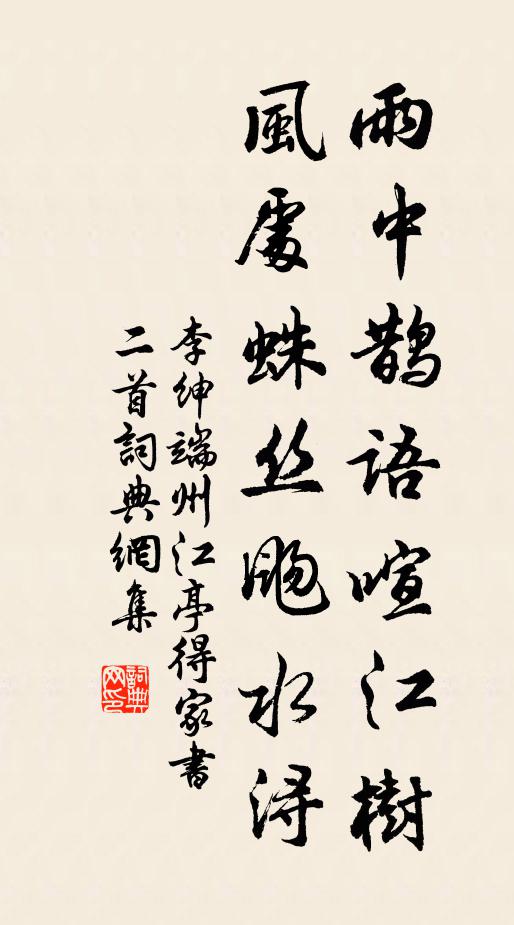 雨中鹊语喧江樹
風處蛛丝飏水浔
李绅端州江亭得家書
二首詞典網集
詞典网印